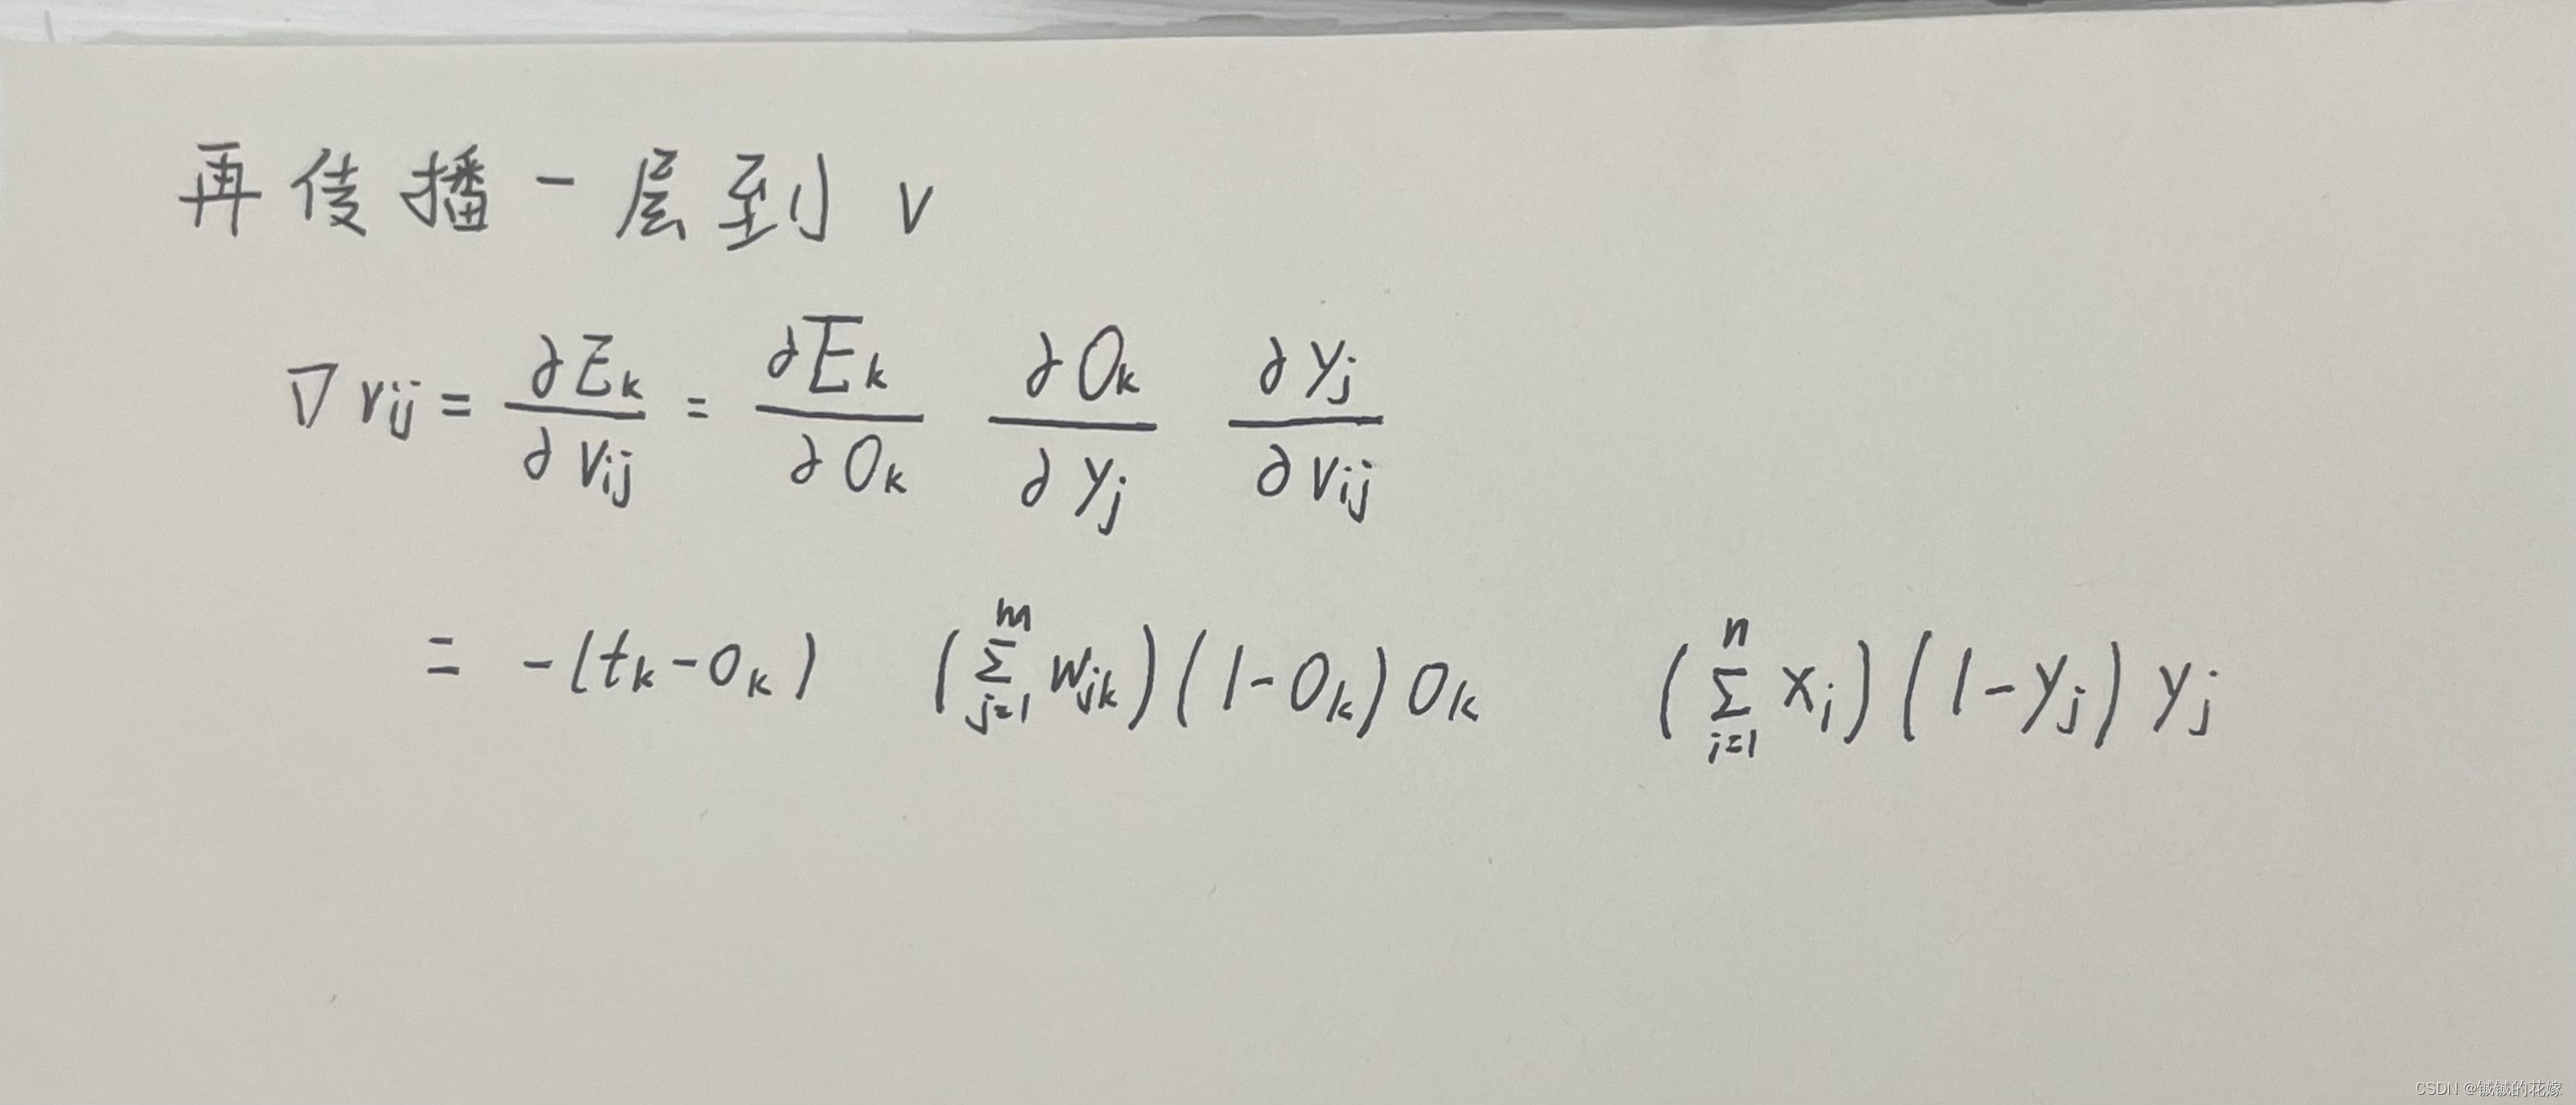 再传播一层到 v
∇vij = ∂Ek/∂vij = ∂Ek/∂Ok ∂Ok/∂yj ∂yj/∂vij
= -(tk-Ok) (∑_{j=1}^{m} wjk)(1-Ok)Ok (∑_{i=1}^{n} xi)(1-yj)yj
CSDN @铖铖的花嫁